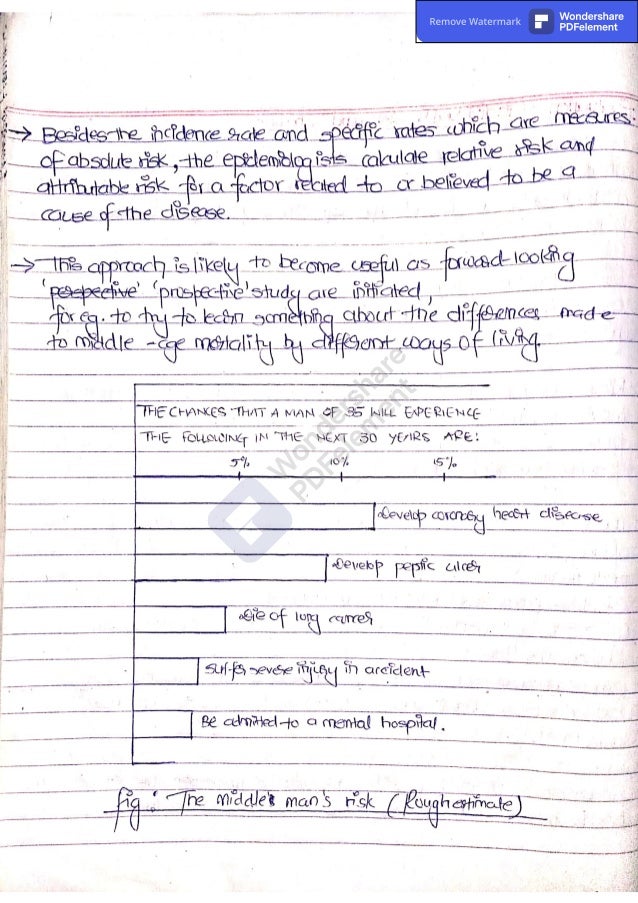 Remove Watermark
Wondershare
PDFelement
→ Besides the incidence rate and specific rates which are measures
of absolute risk, the epidemiologists calculate relative risk and
attributable risk for a factor related to or believed to be a
cause of the disease.
→ This approach is likely to become useful as forward looking
'perspective' 'prospective' study are initiated,
for eg. to try to learn something about the differences made
to middle-age mortality by different ways of living.
THE CHANCES THAT A MAN OF 35 WILL EXPERIENCE
THE FOLLOWING IN THE NEXT 30 YEARS ARE:
5% 10% 15%
Develop coronary heart disease
Develop peptic ulcer
Die of lung cancer
Suffer severe injury in accident
Be admitted to a mental hospital.
Wondershare
PDFelement
fig: The middle's man's risk (Rough estimate)